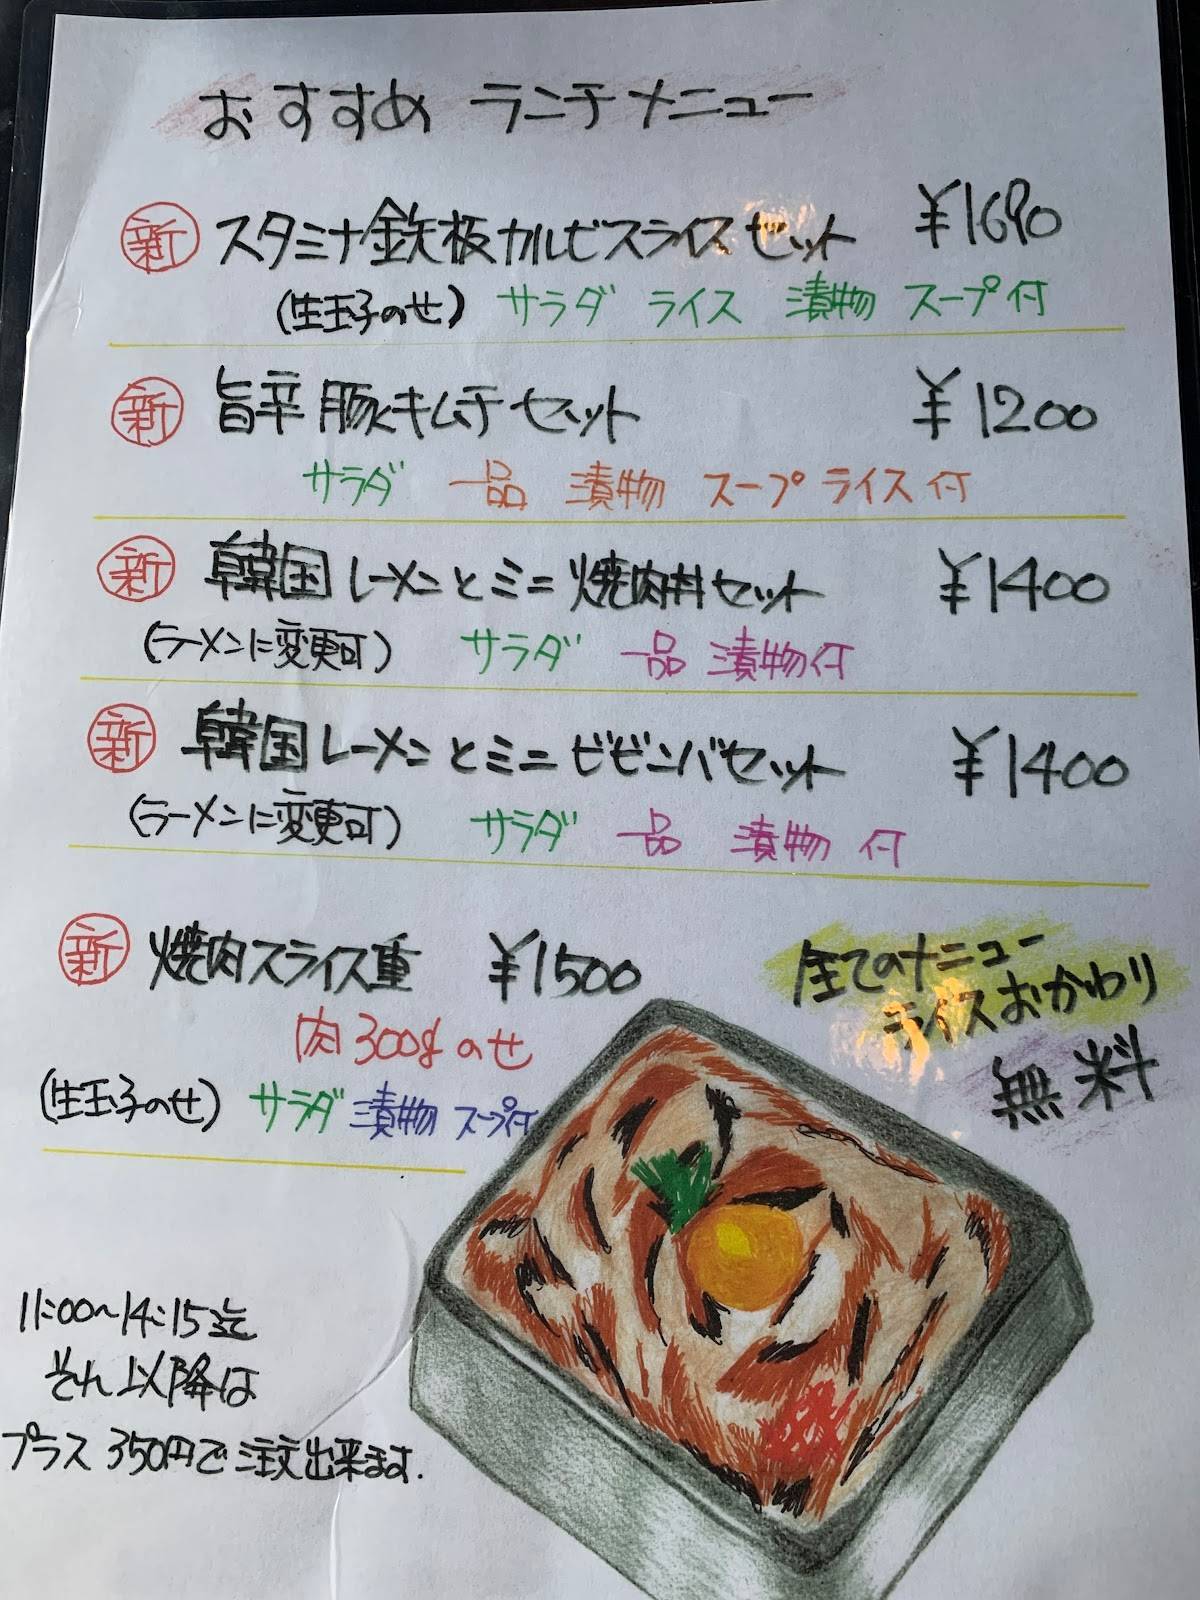 おすすめ ランチメニュー
新 スタミナ鉄板カルビスライスセット ¥1690
(生玉子のせ) サラダ ライス 漬物 スープ付
新 旨辛 豚キムチセット ¥1200
サラダ 一品 漬物 スープ ライス付
新 韓国レーメンとミニ焼肉丼セット ¥1400
(ラーメンに変更可) サラダ 一品 漬物付
新 韓国レーメンとミニビビンバセット ¥1400
(ラーメンに変更可) サラダ 一品 漬物 付
新 焼肉スライス重 ¥1500
肉300gのせ
(生玉子のせ) サラダ 漬物 スープ付
全てのメニュー
ライスおかわり
無料
11:00~14:15迄
それ以降は
プラス350円で注文出来ます.